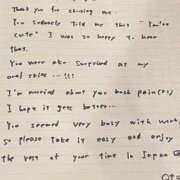 Thank you for choosing me.
You suddenly told me that "You're
cute" I was so happy to hear
that.
You were also surprised at my
oral skills ... !!!
I'm worried about your back pain(s)
I hope it gets better...
You seemed very busy with work,
so please take it easy and enjoy
the rest of your time in Japan
Oto